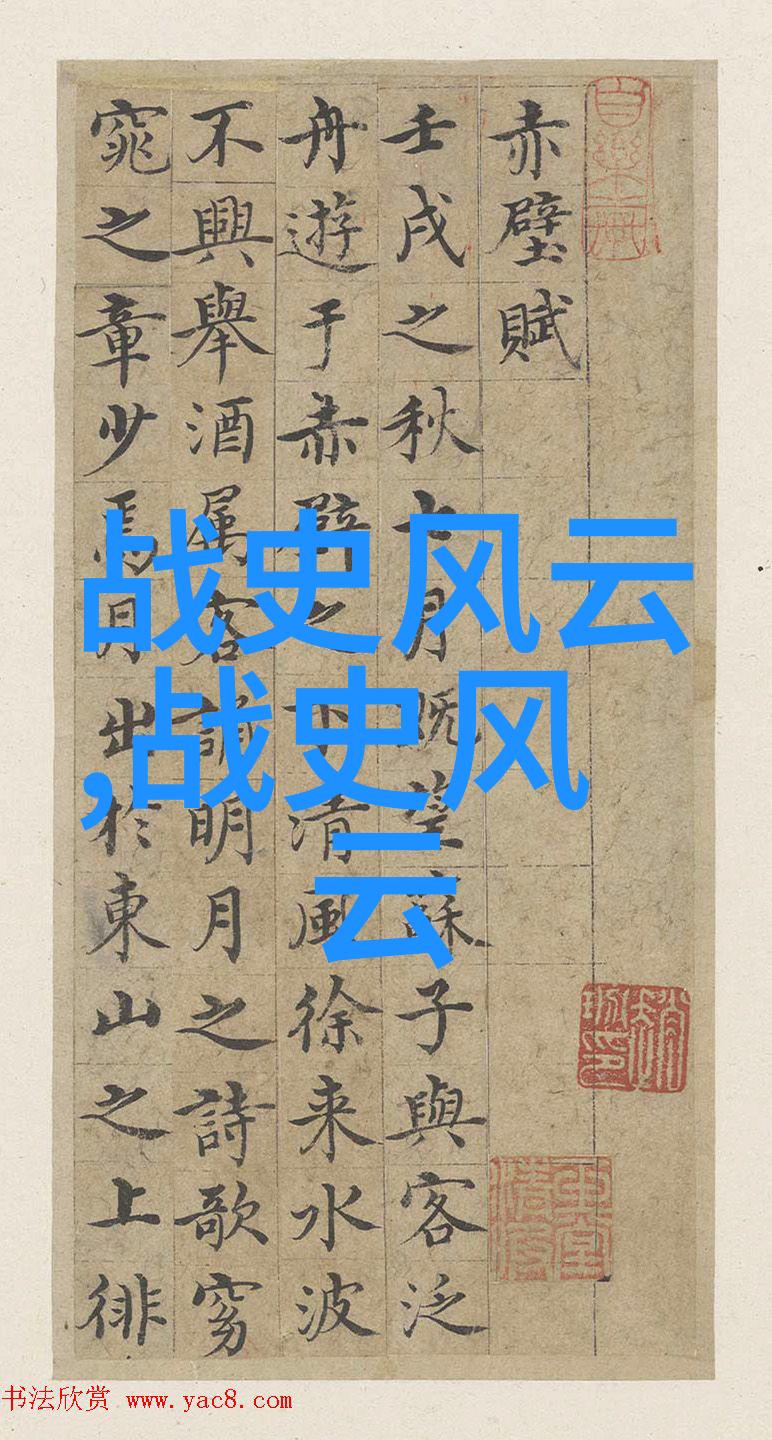 赤壁賦
壬戌之秋七月既望蘇子與客泛
舟遊于赤壁之下清風徐来水波
不興舉酒属客誦明月之詩歌窈
窕之章少焉月出於東山之上徘
战史风云
,战史风
云
书法欣赏 www.yac8.com